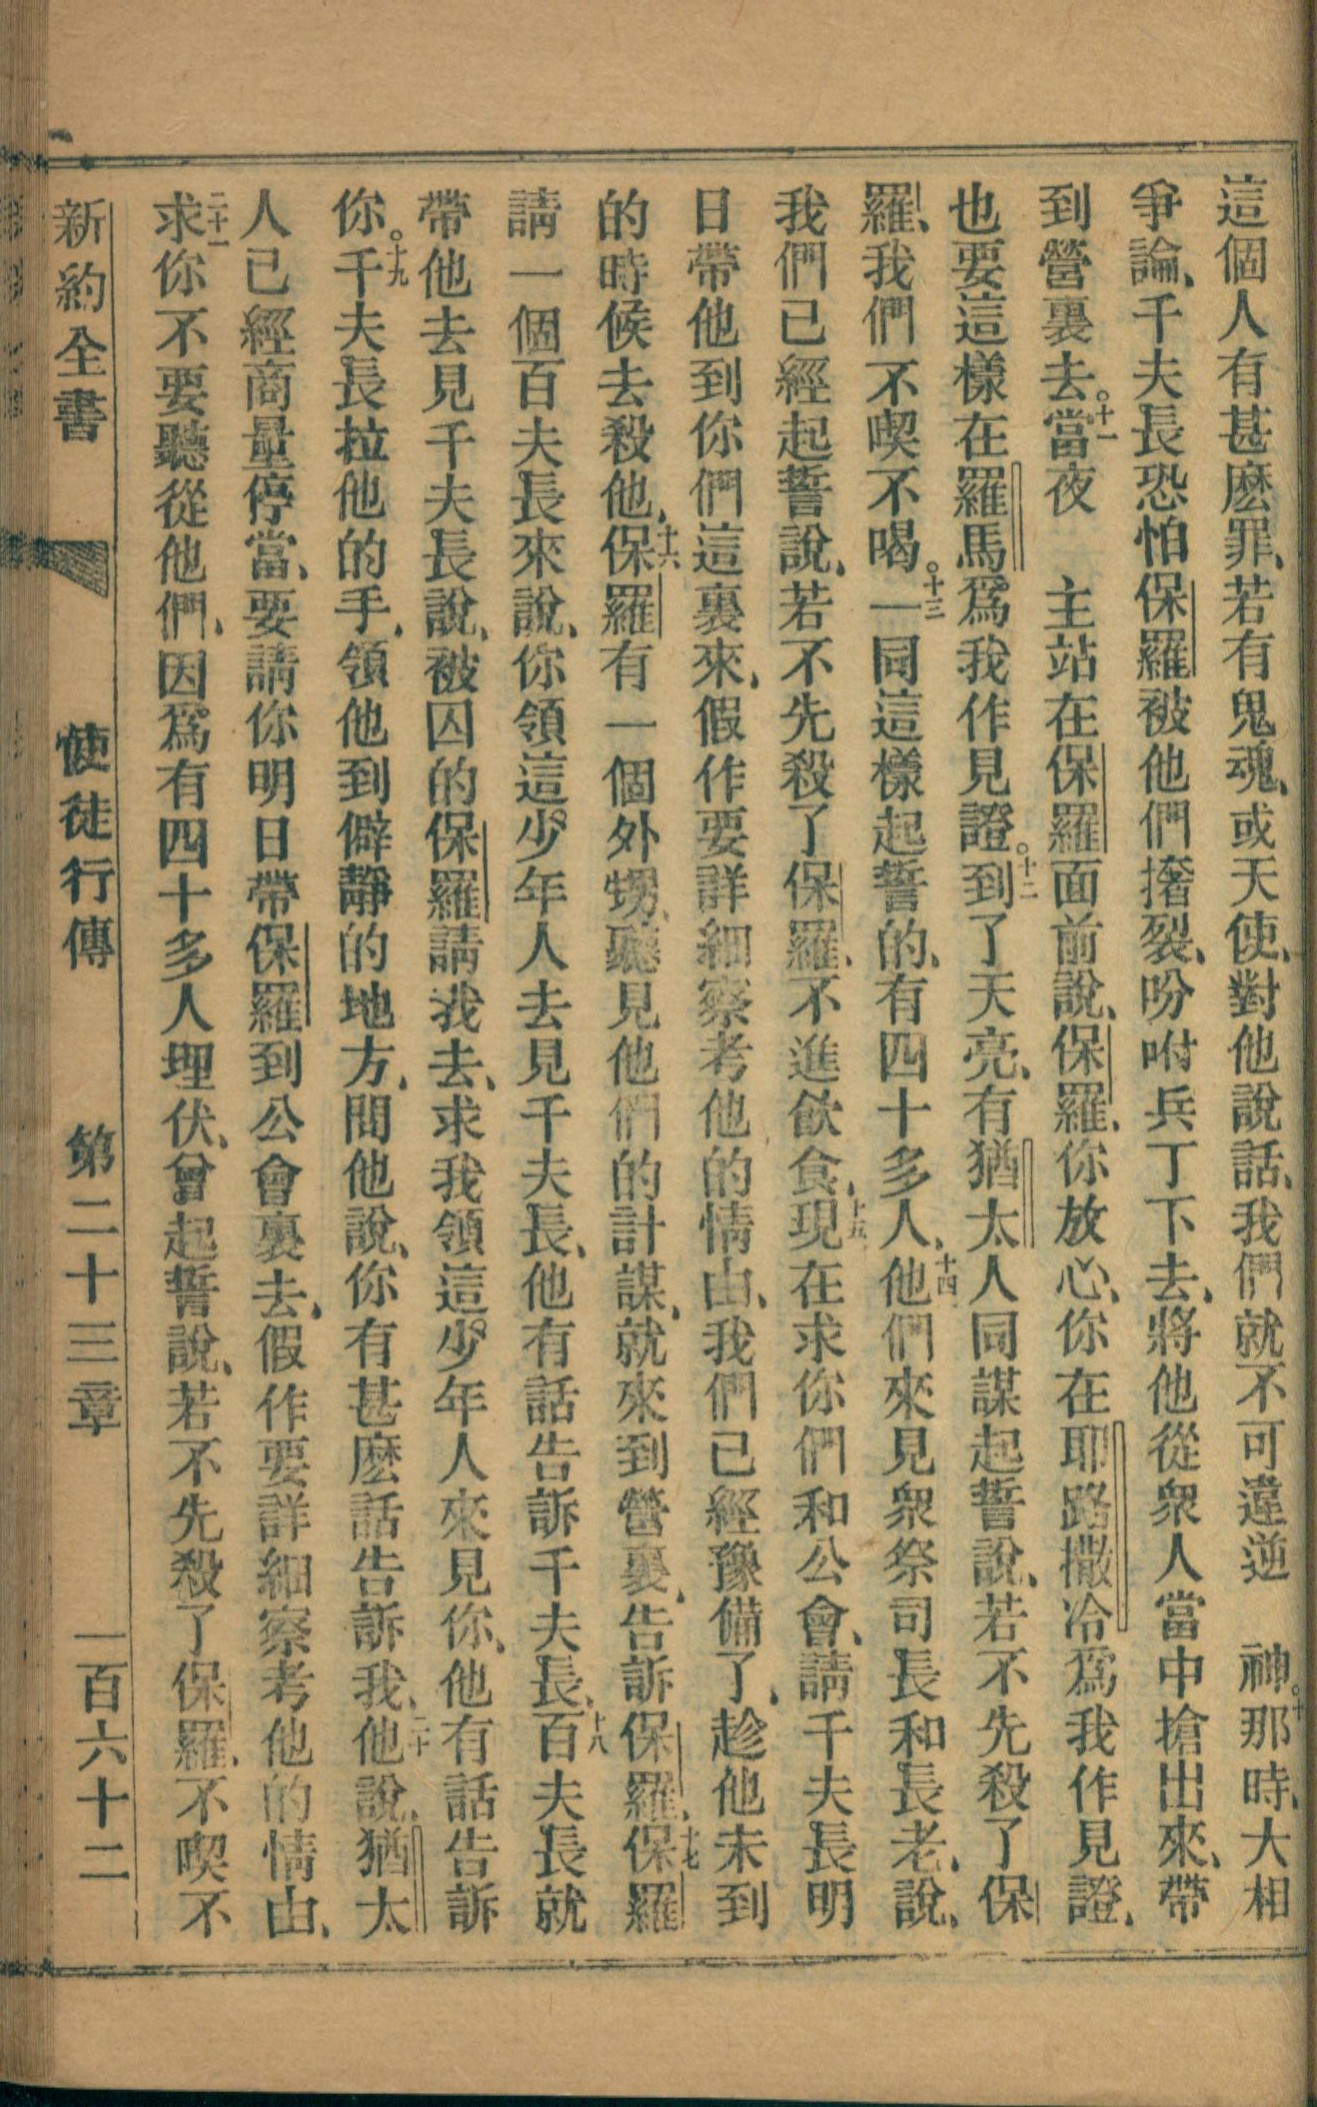 這個人有甚麽罪、若有鬼魂、或天使、對他說話、我們就不可違逆　神。十那時、大相
爭論、千夫長恐怕保羅被他們撦裂、吩咐兵丁下去、將他從衆人當中搶出來、帶
到營裏去。十一當夜　主站在保羅面前說、保羅、你放心、你在耶路撒冷爲我作見證、
也要這樣在羅馬爲我作見證。十二到了天亮、有猶太人同謀起誓說、若不先殺了保
羅、我們不喫不喝。十三一同這樣起誓的、有四十多人、十四他們來見衆祭司長和長老、說、
我們已經起誓說、若不先殺了保羅、不進飲食、十五現在求你們和公會、請千夫長明
日帶他到你們這裏來、假作要詳細察考他的情由、我們已經豫備了、趁他未到
的時候去殺他、十六保羅有一個外甥、聽見他們的計謀、就來到營裏、告訴保羅、十七保羅
請一個百夫長來說、你領這少年人去見千夫長、他有話告訴千夫長、十八百夫長就
帶他去見千夫長說、被囚的保羅請我去、求我領這少年人來見你、他有話告訴
你。十九千夫長拉他的手、領他到僻靜的地方、問他說、你有甚麽話告訴我、二十他說、猶太
人已經商量停當、要請你明日帶保羅到公會裏去、假作要詳細察考他的情由、
二十一求你不要聽從他們、因爲有四十多人埋伏、曾起誓說、若不先殺了保羅、不喫不
新約全書　使徒行傳　第二十三章　一百六十二